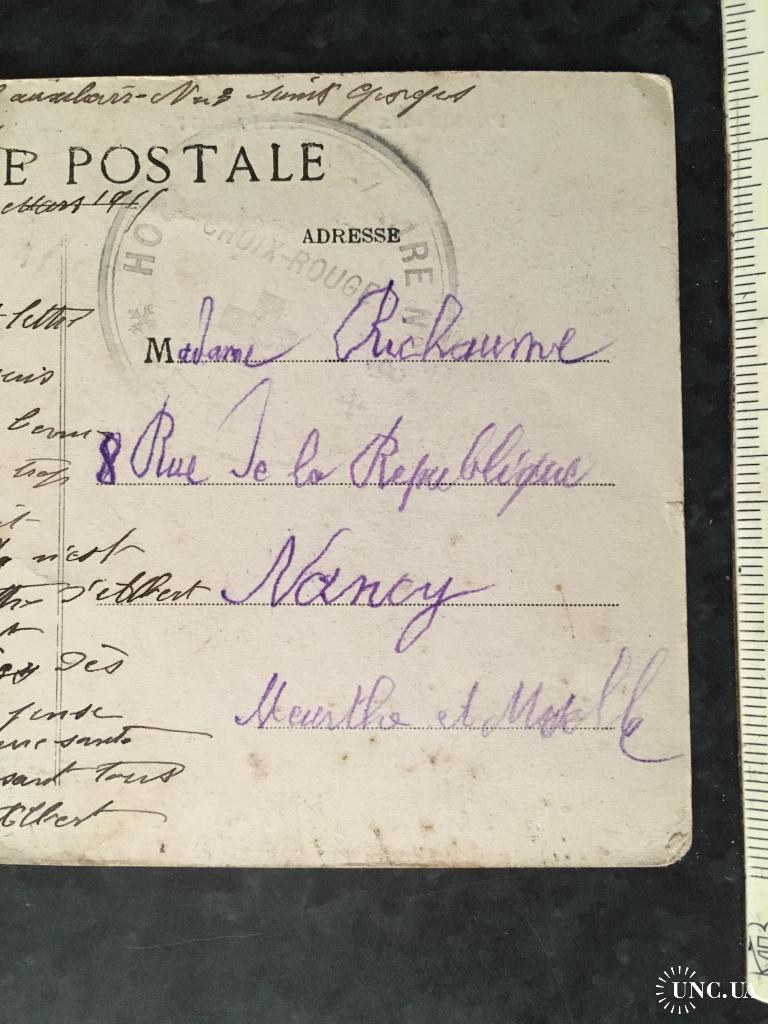 auxiliaire No 3 saint Georges
E POSTALE
Mars 1915
ADRESSE
HO RE N
CROIX-ROUGE
Madame Richaume
8 Rue de la Republique
Nancy
Meurthe et Moselle
lettre
trop
n'est
d'Albert
dès
pense
santé
sant tous
Albert
UNC.UA